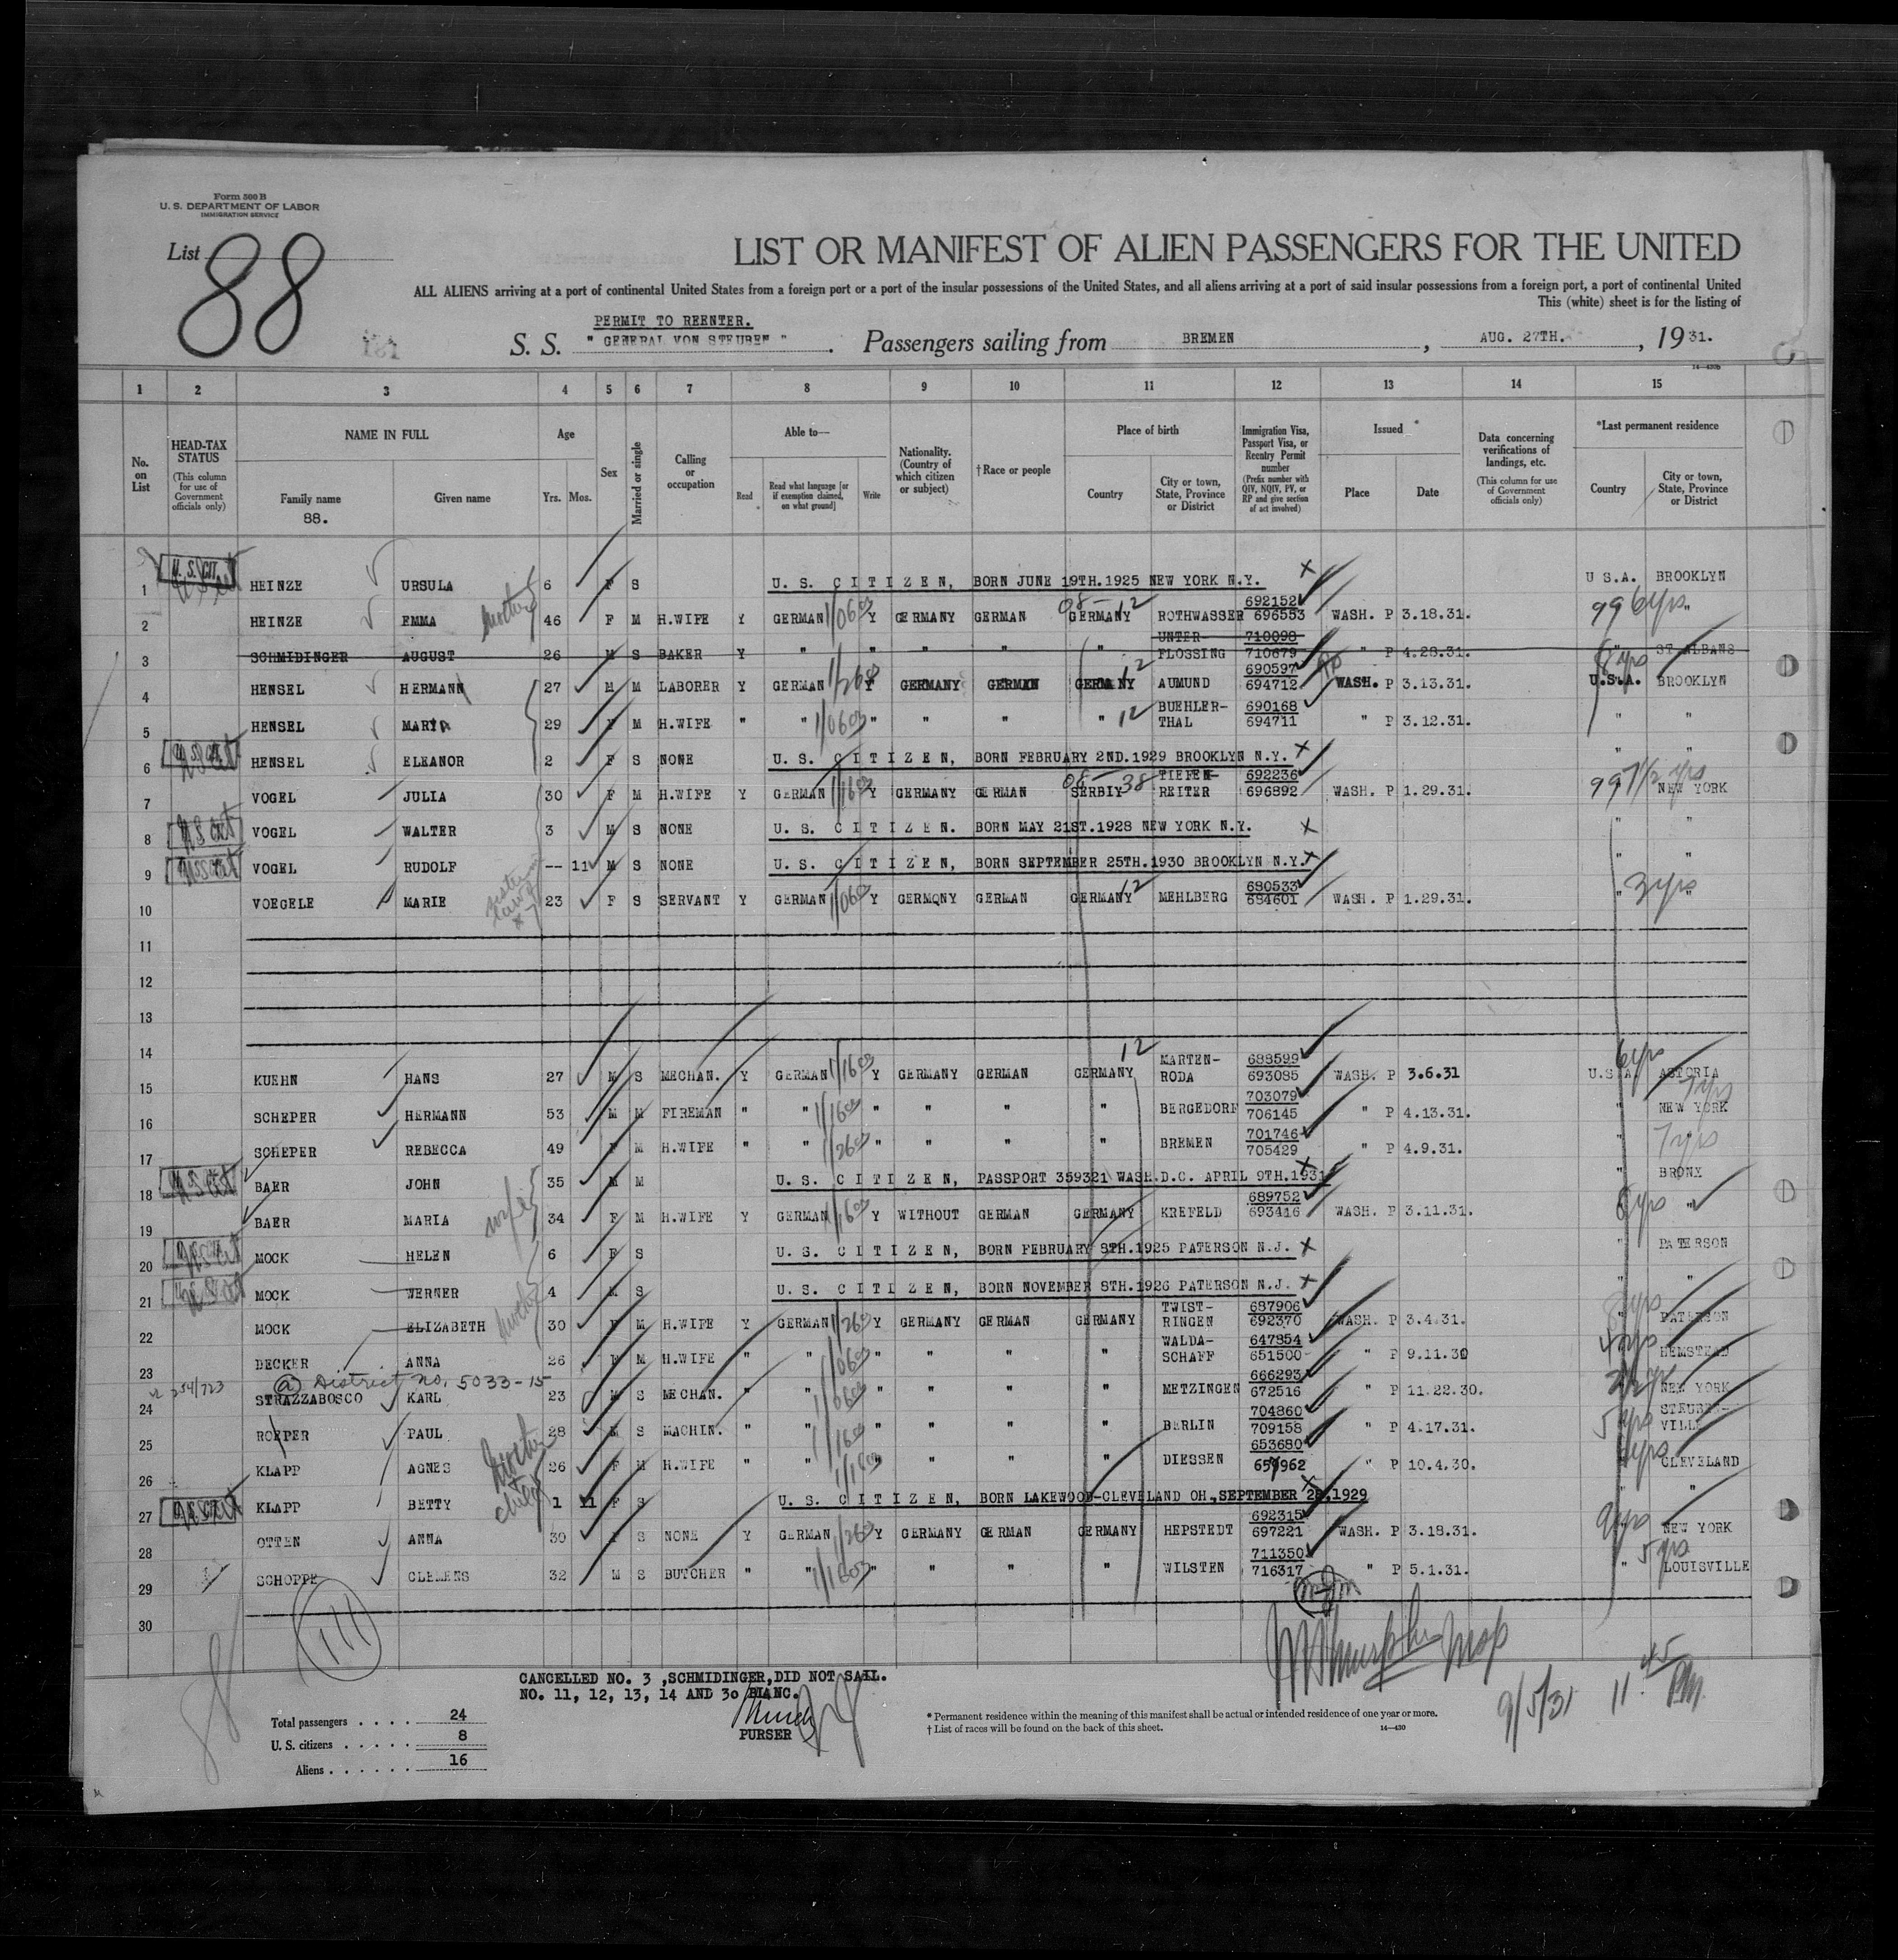 Form 500 B
U. S. DEPARTMENT OF LABOR
IMMIGRATION SERVICE
List 88
LIST OR MANIFEST OF ALIEN PASSENGERS FOR THE UNITED
ALL ALIENS arriving at a port of continental United States from a foreign port or a port of the insular possessions of the United States, and all aliens arriving at a port of said insular possessions from a foreign port, a port of continental United
This (white) sheet is for the listing of
PERMIT TO REENTER.
S. S. " GENERAL VON STEUBEN " . Passengers sailing from BREMEN , AUG. 27TH. , 19 31.
14-430b
1 2 3 4 5 6 7 8 9 10 11 12 13 14 15
No. on List
HEAD-TAX STATUS (This column for use of Government officials only)
NAME IN FULL
Family name
88.
Given name
Age
Yrs. Mos.
Sex
Married or single
Calling or occupation
Able to—
Read
Read what language [or if exemption claimed, on what ground]
Write
Nationality. (Country of which citizen or subject)
† Race or people
Place of birth
Country
City or town, State, Province or District
Immigration Visa, Passport Visa, or Reentry Permit number (Prefix number with QIV, NQIV, PV, or RP and give section of act involved)
Issued *
Place
Date
Data concerning verifications of landings, etc. (This column for use of Government officials only)
*Last permanent residence
Country
City or town, State, Province or District
1 U. S. CIT HEINZE URSULA 6 F S U. S. C I T I Z E N, BORN JUNE 19TH.1925 NEW YORK N.Y. X U S.A. BROOKLYN
2 HEINZE EMMA mother 46 F M H.WIFE Y GERMAN Y GERMANY GERMAN GERMANY 12 ROTHWASSER 692152 696553 WASH. P 3.18.31. 99 6 yrs "
3 SCHMIDINGER AUGUST 26 M S BAKER Y " " " " " UNTER- FLOSSING 710098 710679 " P 4.28.31. " ST ALBANS
4 HENSEL HERMANN 27 M M LABORER Y GERMAN Y GERMANY GERMAN GERMANY 12 AUMUND 690597 694712 WASH. P 3.13.31. 8 yrs U.S.A. BROOKLYN
5 HENSEL MARIA 29 F M H.WIFE " " " " " " 12 BUEHLER- THAL 690168 694711 " P 3.12.31. " "
6 HENSEL ELEANOR 2 F S NONE U. S. C I T I Z E N, BORN FEBRUARY 2ND.1929 BROOKLYN N.Y. X " "
7 VOGEL JULIA 30 F M H.WIFE Y GERMAN Y GERMANY GERMAN SERBIY 38 TIEFEN- REITER 692236 696892 WASH. P 1.29.31. 99 7 1/2 yrs NEW YORK
8 VOGEL WALTER 3 M S NONE U. S. C I T I Z E N. BORN MAY 21ST.1928 NEW YORK N.Y. X " "
9 VOGEL RUDOLF -- 11 M S NONE U. S. C I T I Z E N, BORN SEPTEMBER 25TH.1930 BROOKLYN N.Y. X " "
10 VOEGELE MARIE 23 F S SERVANT Y GERMAN Y GERMONY GERMAN GERMANY 12 MEHLBERG 680533 684601 WASH. P 1.29.31. " 3 yrs "
11
12
13
14
15 KUEHN HANS 27 M S MECHAN. Y GERMAN Y GERMANY GERMAN GERMANY 12 MARTEN- RODA 688599 693085 WASH. P 3.6.31 6 yrs U.S.A. ASTORIA
16 SCHEPER HERMANN 53 M M FIREMAN " " " " " " BERGEDORF 703079 706145 " P 4.13.31. " NEW YORK 7 yrs
17 SCHEPER REBECCA 49 F M H.WIFE " " " " " " BREMEN 701746 705429 " P 4.9.31. " 7 yrs
18 BAER JOHN 35 M M U. S. C I T I Z E N, PASSPORT 359321 WASH.D.C. APRIL 9TH.1931 X " BRONX
19 BAER MARIA wife 34 F M H.WIFE Y GERMAN Y WITHOUT GERMAN GERMANY KREFELD 689752 693416 WASH. P 3.11.31. yrs "
20 MOCK HELEN 6 F S U. S. C I T I Z E N, BORN FEBRUARY 8TH.1925 PATERSON N.J. X " PATERSON
21 MOCK WERNER 4 M S U. S. C I T I Z E N, BORN NOVEMBER 8TH.1926 PATERSON N.J. X " "
22 MOCK ELIZABETH mother 30 F M H.WIFE Y GERMAN Y GERMANY GERMAN GERMANY TWIST- RINGEN 687906 692370 WASH. P 3.4.31. yrs PATERSON
23 DECKER ANNA 26 M H.WIFE " " " " " " WALDA- SCHAFF 647854 651500 " P 9.11.30 yrs HEMSTEAD
(a) District no. 5033-15
24 STRAZZABOSCO KARL 23 M S MECHAN. " " " " " " METZINGEN 666293 672516 " P 11.22.30. NEW YORK
25 ROEPER PAUL 28 M S MACHIN. " " " " " " BERLIN 704860 709158 " P 4.17.31. 5 yrs STEUBEN- VILLE
26 KLAPP AGNES mother 26 F M H.WIFE " " " " " " DIESSEN 653680 657962 " P 10.4.30. yrs CLEVELAND
27 KLAPP BETTY child 1 11 F S U. S. C I T I Z E N, BORN LAKEWOOD-CLEVELAND OH., SEPTEMBER 2 .1929 X " "
28 OTTEN ANNA 30 F S NONE Y GERMAN Y GERMANY GERMAN GERMANY HEPSTEDT 692315 697221 WASH. P 3.18.31. yrs NEW YORK
29 SCHOPPE CLEMENS 32 M S BUTCHER " " " " " " WILSTEN 711350 716317 " P 5.1.31. " 5 yrs LOUISVILLE
30
111
88
CANCELLED NO. 3 ,SCHMIDINGER,DID NOT SAIL.
NO. 11, 12, 13, 14 AND 30 BLANC.
PURSER
Total passengers . . . . 24
U. S. citizens . . . . . 8
Aliens . . . . . . 16
* Permanent residence within the meaning of this manifest shall be actual or intended residence of one year or more.
† List of races will be found on the back of this sheet.
14—430
9/5/31 11 45 PM.